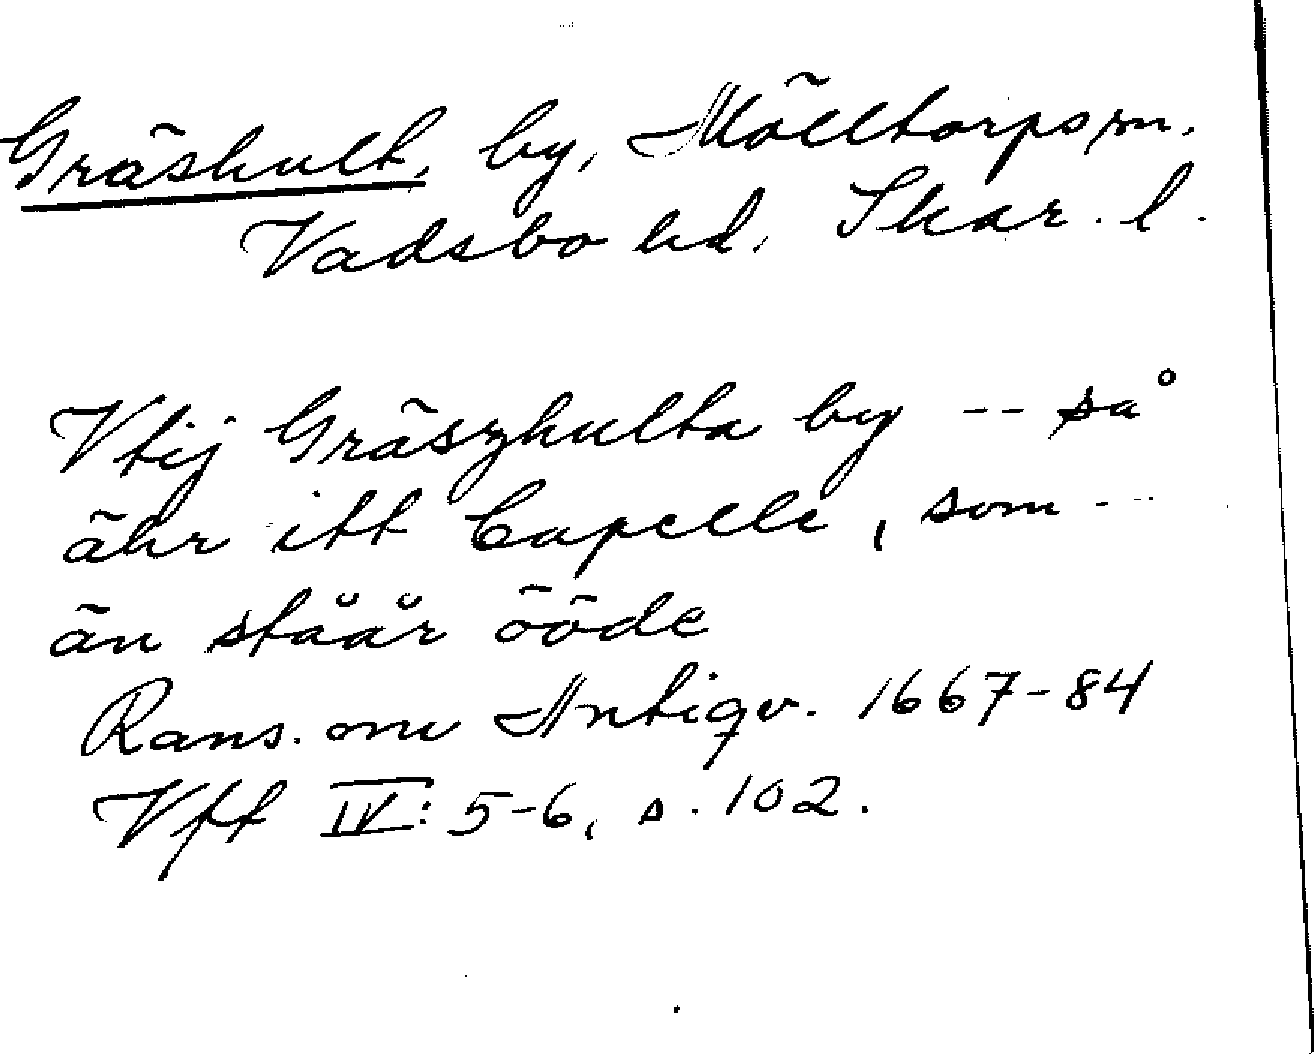 Gräshult, by, Mölltorps sn.
Vadsbo hd, Skar. l.
Vtij Gräszhulta by -- så
ähr itt Capelle, som --
änståår ööde
Rans. om Antiqv. 1667-84
Vff IV: 5-6, s. 102.